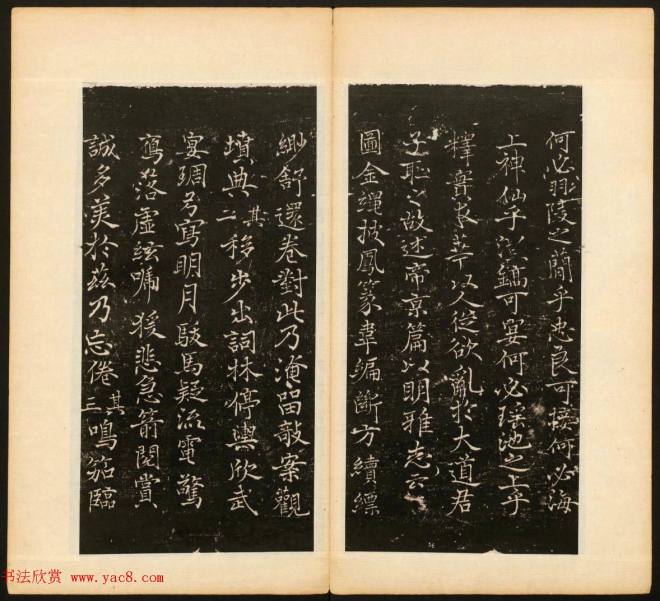 何必羽陵之簡乎忠良可接何必海
上神仙乎豐鎬可宴何必瑤池之上乎
釋實求華以人從欲亂於大道君
子恥之故述帝京篇以明雅志云
圖金繩披鳳篆韋編斷方續縹
緲舒還卷對此乃淹留敧案觀
墳典其二移步出詞林停輿欣武
宴琱弓寫明月駿馬疑流電驚
鴈落虛弦啼猨悲急箭閱賞
誠多美於茲乃忘倦其三鳴笳臨
书法欣赏 www.yac8.com